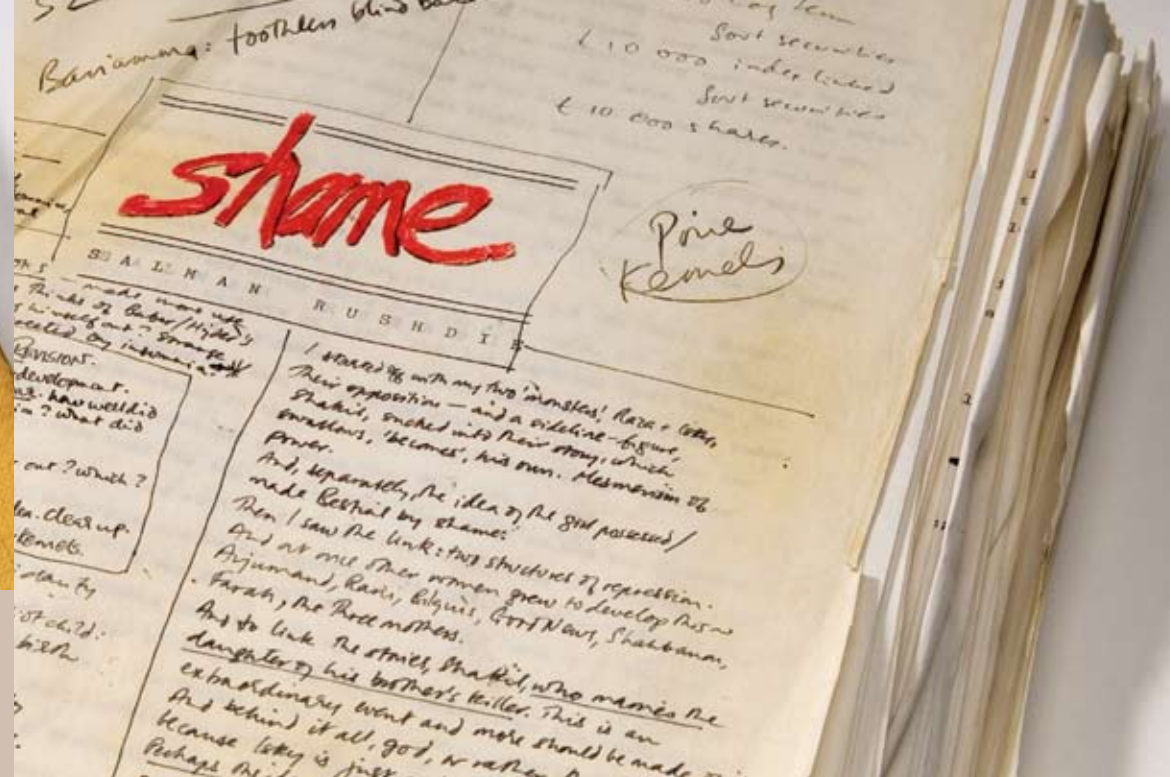 Bariamma: toothless blind
Govt securities
£10 000 index linked
Govt securities
£10 000 shares.
shame
SALMAN RUSHDIE
Pine
Kernels
made
thinks of Babar/Hyder's
himself out? Strange
created by insomnia?
REVISION.
development.
how well did
in? what did
out? which?
idea. clear up.
kernels.
of child:
birth
I started off with my two 'monsters', Raza + Isky,
their opposition — and a sideline-figure,
Shakil, sucked into their story, which
swallows, 'becomes', his own. Mesmerism of
power.
And, separately, the idea of the girl possessed/
made Bestial by shame.
Then I saw the link: two structures of repression.
And at once other women grew to develop this
Arjumand, Rani, Bilquis, Good News, Shahbanou,
Farah, the Three mothers.
And to link the stories, Shakil, who marries the
daughter of his brother's killer. This is an
extraordinary event and more should be made
And behind it all, god, or rather
because Isky is just
Perhaps